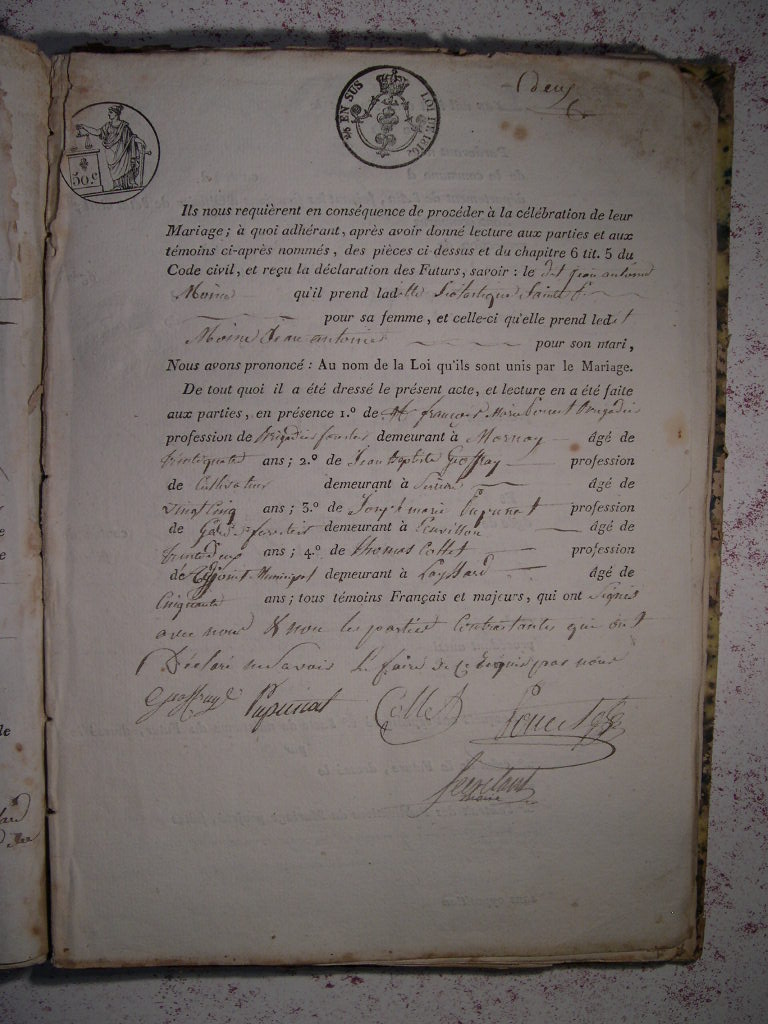 EN SUS LOI DE 1816
50 c
Deux
Ils nous requièrent en conséquence de procéder à la célébration de leur
Mariage; à quoi adhérant, après avoir donné lecture aux parties et aux
témoins ci-après nommés, des pièces ci-dessus et du chapitre 6 tit. 5 du
Code civil, et reçu la déclaration des Futurs, savoir : le dit jean antoine
Moine qu'il prend ladite
pour sa femme, et celle-ci qu'elle prend ledit
Moine Jean antoine pour son mari,
Nous avons prononcé : Au nom de la Loi qu'ils sont unis par le Mariage.
De tout quoi il a été dressé le présent acte, et lecture en a été faite
aux parties, en présence 1.º de françois Marie Poncet Brigadier
profession de Brigadier forestier demeurant à Mornay âgé de
ans; 2.º de Jean Baptiste Geoffray profession
de Cultivateur demeurant à âgé de
vingt cinq ans; 3.º de Joseph marie Pupunat profession
de Garde forestier demeurant à Leuvillon âgé de
trente deux ans; 4.º de Thomas Collet profession
de Adjoint Municipal demeurant à Leyssard âgé de
Cinquante ans; tous témoins Français et majeurs, qui ont Signés
avec nous & non les parties Contractantes qui ont
Déclaré ne Savoir le faire de ce requis par nous
Geoffray Pupunat Collet Poncet
Secretant
maire